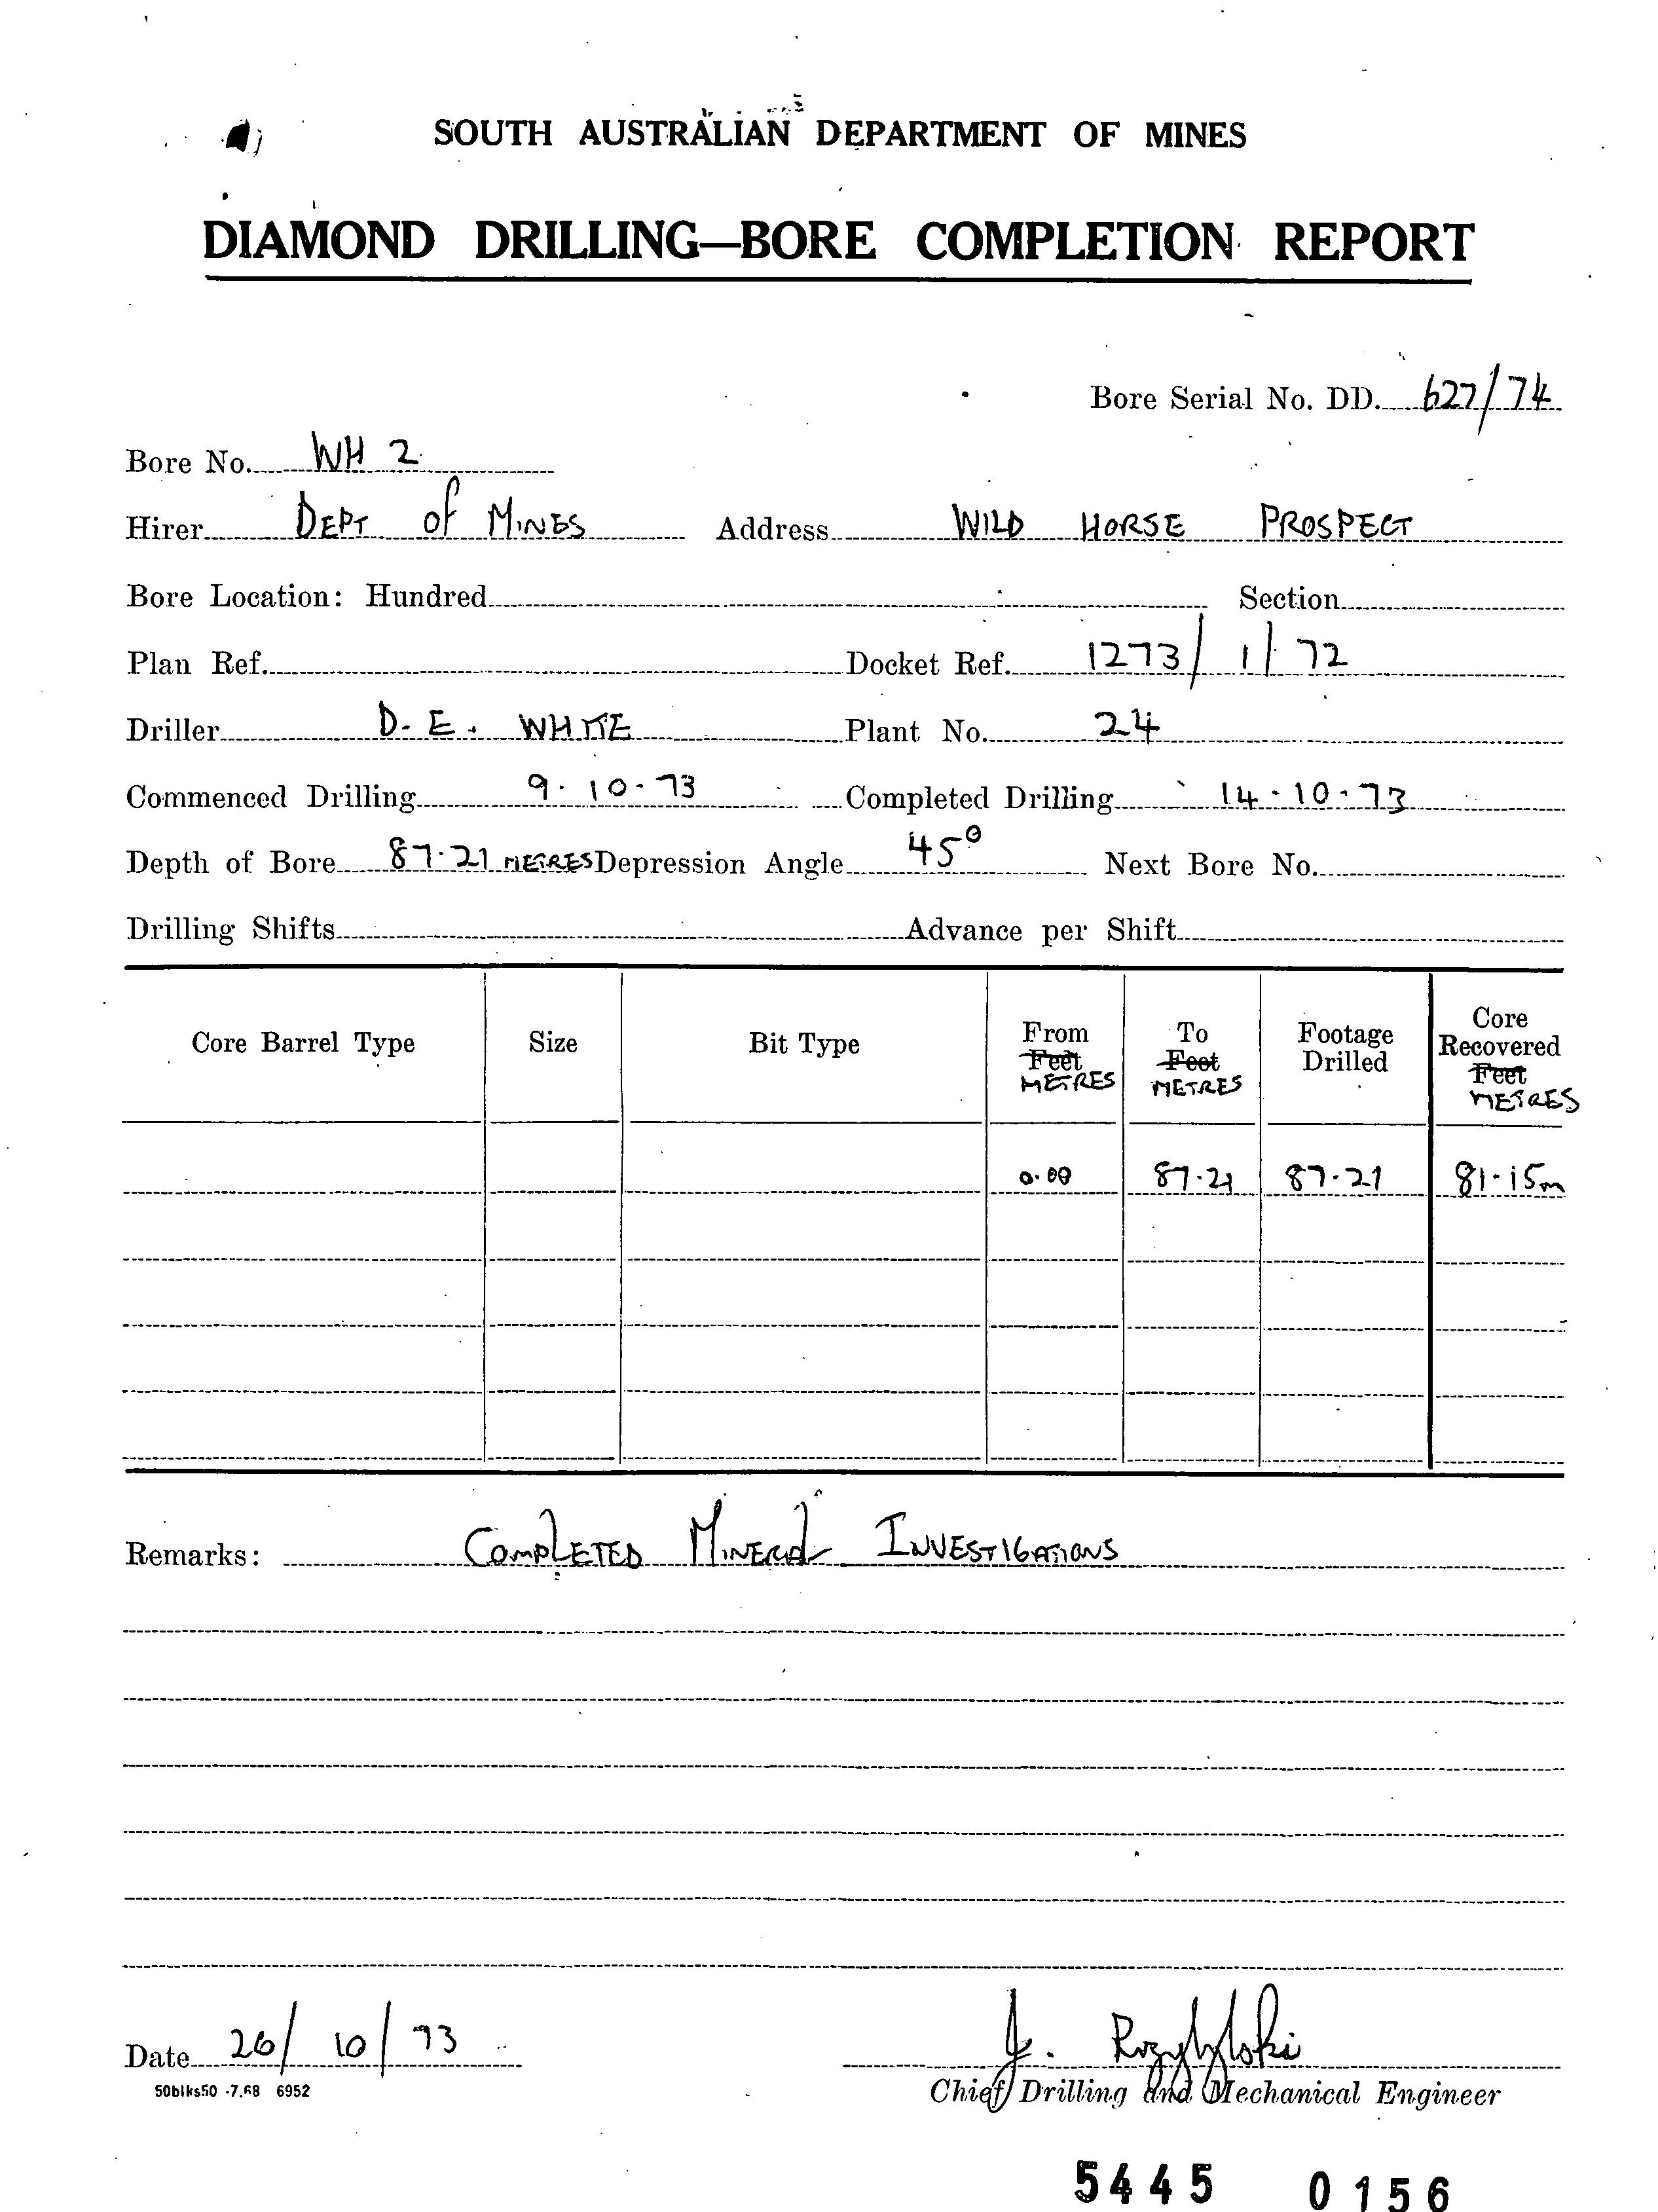 SOUTH AUSTRALIAN DEPARTMENT OF MINES
DIAMOND DRILLING—BORE COMPLETION REPORT
Bore Serial No. DD. 627/74
Bore No. WH 2
Hirer DEPT of MINES Address WILD HORSE PROSPECT
Bore Location: Hundred Section
Plan Ref. Docket Ref. 1273/1/72
Driller D. E. WHITE Plant No. 24
Commenced Drilling 9.10.73 Completed Drilling 14.10.73
Depth of Bore 87.21 METRES Depression Angle 45° Next Bore No.
Drilling Shifts Advance per Shift
Core Barrel Type Size Bit Type From Feet METRES To Feet METRES Footage Drilled Core Recovered Feet METRES
0.00 87.21 87.21 81.15m
Remarks: COMPLETED MINERAL INVESTIGATIONS
Date 26/10/73
50blks50 -7.68 6952
Chief Drilling and Mechanical Engineer
5445 0156